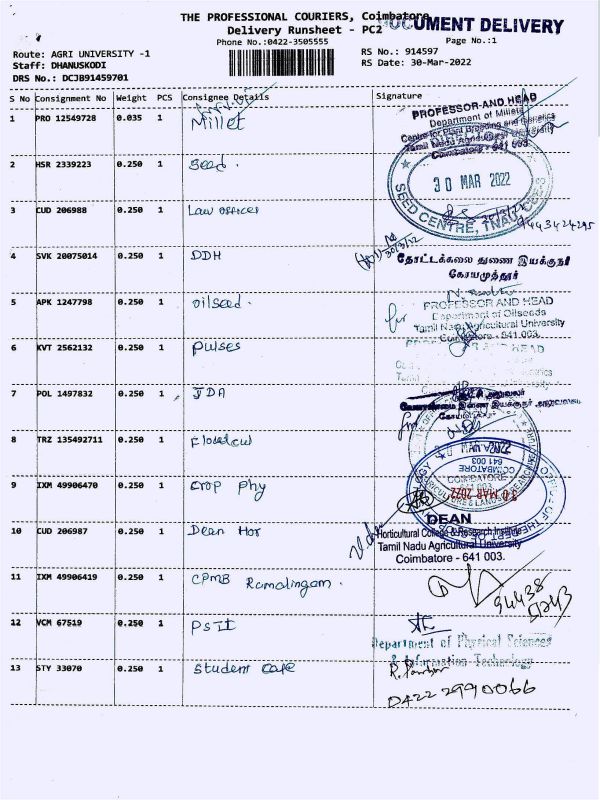 THE PROFESSIONAL COURIERS, Coimbatore
DOCUMENT DELIVERY
Delivery Runsheet - PC2
Phone No.:0422-3505555
Page No.:1
Route: AGRI UNIVERSITY -1
RS No.: 914597
Staff: DHANUSKODI
RS Date: 30-Mar-2022
DRS No.: DCJB91459701
S No Consignment No Weight PCS Consignee Details Signature
1 PRO 12549728 0.035 1 Millet
PROFESSOR AND HEAD
Department of Millets
Centre for Plant Breeding and Genetics
Tamil Nadu Agricultural University
Coimbatore - 641 003.
2 HSR 2339223 0.250 1 Seed.
30 MAR 2022
SEED CENTRE, TNAU
3 CUD 206988 0.250 1 Law officer
9443424295
4 SVK 20075014 0.250 1 DDH
30/3/22
தோட்டக்கலை துணை இயக்குநர்
கோயமுத்தூர்
5 APK 1247798 0.250 1 oilseed.
for
PROFESSOR AND HEAD
Department of Oilseeds
Tamil Nadu Agricultural University
Coimbatore - 641 003.
6 KVT 2562132 0.250 1 Pulses
PROFESSOR AND HEAD
Tamil University
7 POL 1497832 0.250 1 JDA
for
8 TRZ 135492711 0.250 1
COIMBATORE
641 003
9 IXM 49906470 0.250 1 Crop Phy
30 MAR 2022
10 CUD 206987 0.250 1 Dean Hor
DEAN
Horticultural College & Research Institute
Tamil Nadu Agricultural University
Coimbatore - 641 003.
11 IXM 49906419 0.250 1 CPMB Ramalingam.
94438
12 VCM 67519 0.250 1 PSIT
Department of Physical Sciences
& Information Technology
13 STY 33070 0.250 1 Student Care
0422 2990066